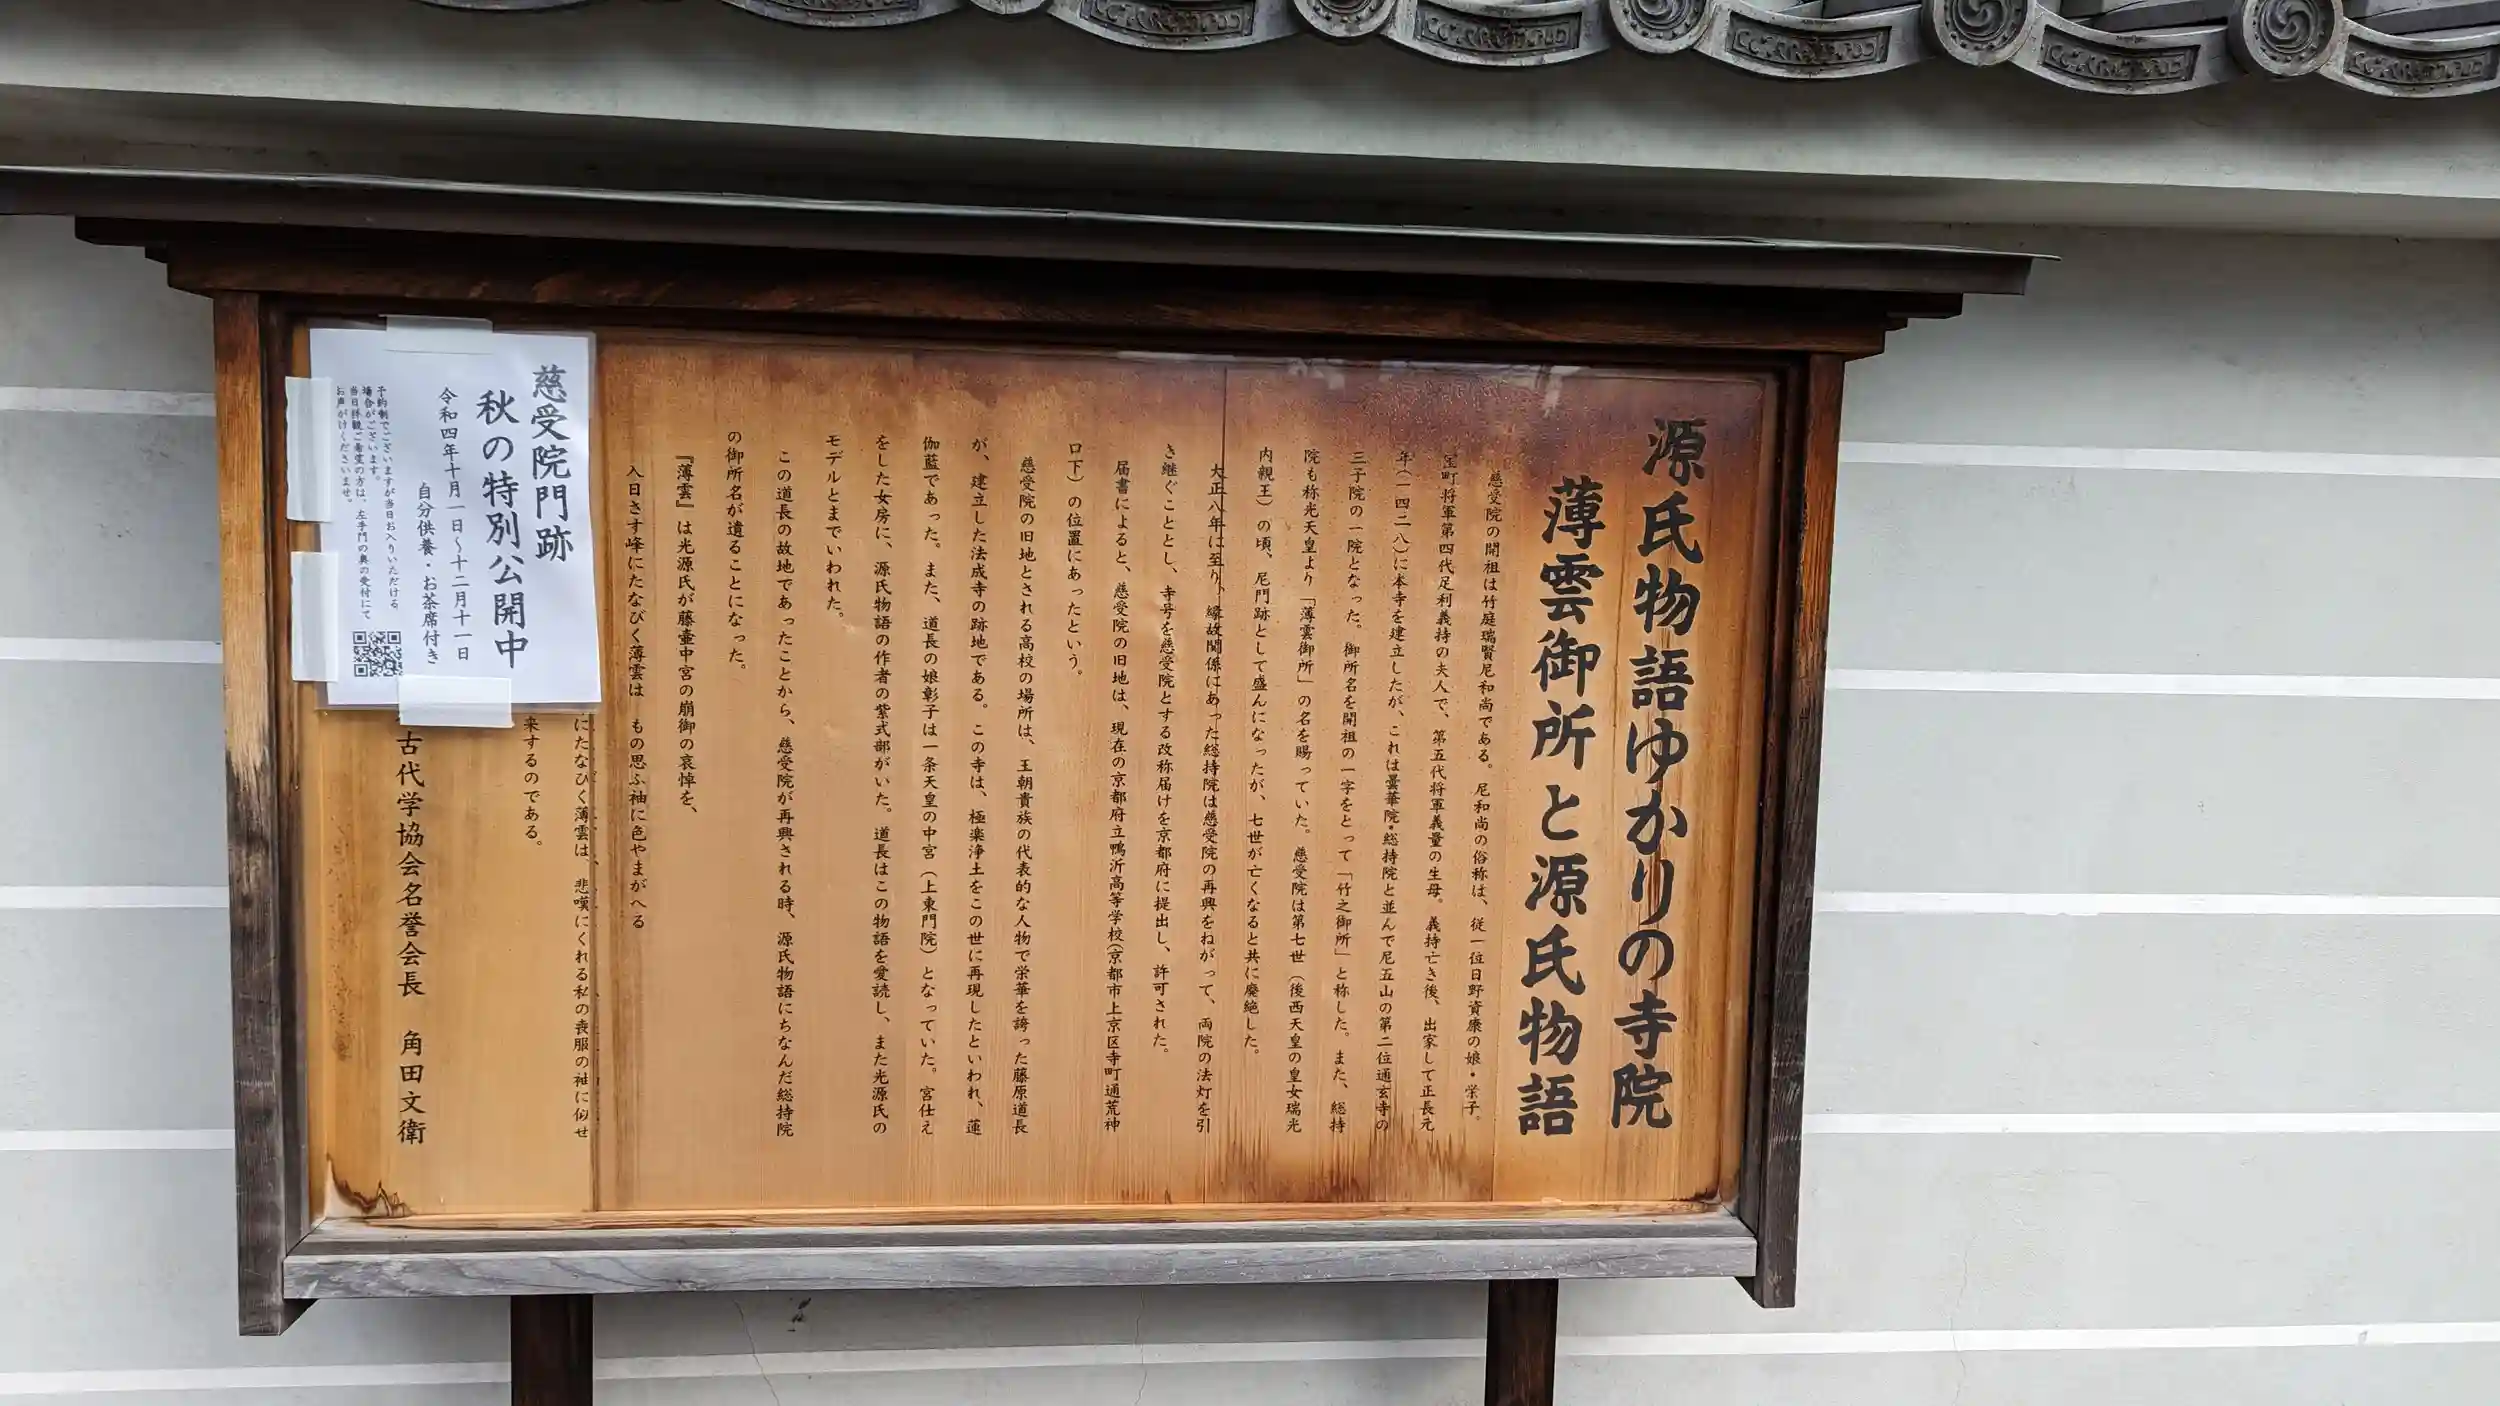 源氏物語ゆかりの寺院
薄雲御所と源氏物語
慈受院の開祖は竹庭瑞賢尼和尚である。尼和尚の俗称は、従一位日野資康の娘・栄子。
室町将軍第四代足利義持の夫人で、第五代将軍義量の生母。義持亡き後、出家して正長元
年(一四二八)に本寺を建立したが、これは曇華院・総持院と並んで尼五山の第二位通玄寺の
三子院の一院となった。御所名を開祖の一字をとって「竹之御所」と称した。また、総持
院も称光天皇より「薄雲御所」の名を賜っていた。慈受院は第七世(後西天皇の皇女瑞光
内親王)の頃、尼門跡として盛んになったが、七世が亡くなると共に廃絶した。
大正八年に至り、縁故関係にあった総持院は慈受院の再興をねがって、両院の法灯を引
き継ぐこととし、寺号を慈受院とする改称届けを京都府に提出し、許可された。
届書によると、慈受院の旧地は、現在の京都府立鴨沂高等学校(京都市上京区寺町通荒神
口下)の位置にあったという。
慈受院の旧地とされる高校の場所は、王朝貴族の代表的な人物で栄華を誇った藤原道長
が、建立した法成寺の跡地である。この寺は、極楽浄土をこの世に再現したといわれ、蓮
伽藍であった。また、道長の娘彰子は一条天皇の中宮(上東門院)となっていた。宮仕え
をした女房に、源氏物語の作者の紫式部がいた。道長はこの物語を愛読し、また光源氏の
モデルとまでいわれた。
この道長の故地であったことから、慈受院が再興される時、源氏物語にちなんだ総持院
の御所名が遺ることになった。
『薄雲』は光源氏が藤壷中宮の崩御の哀悼を、
入日さす峰にたなびく薄雲は もの思ふ袖に色やまがへる
にたなびく薄雲は、悲嘆にくれる私の喪服の袖に似せ
来するのである。
古代学協会名誉会長 角田文衛
慈受院門跡
秋の特別公開中
令和四年十月一日〜十二月十一日
自分供養・お茶席付き
予約制でございますが当日お入りいただける
場合がございます。
当日拝観ご希望の方は、左手門の奥の受付にて
お声がけくださいませ。